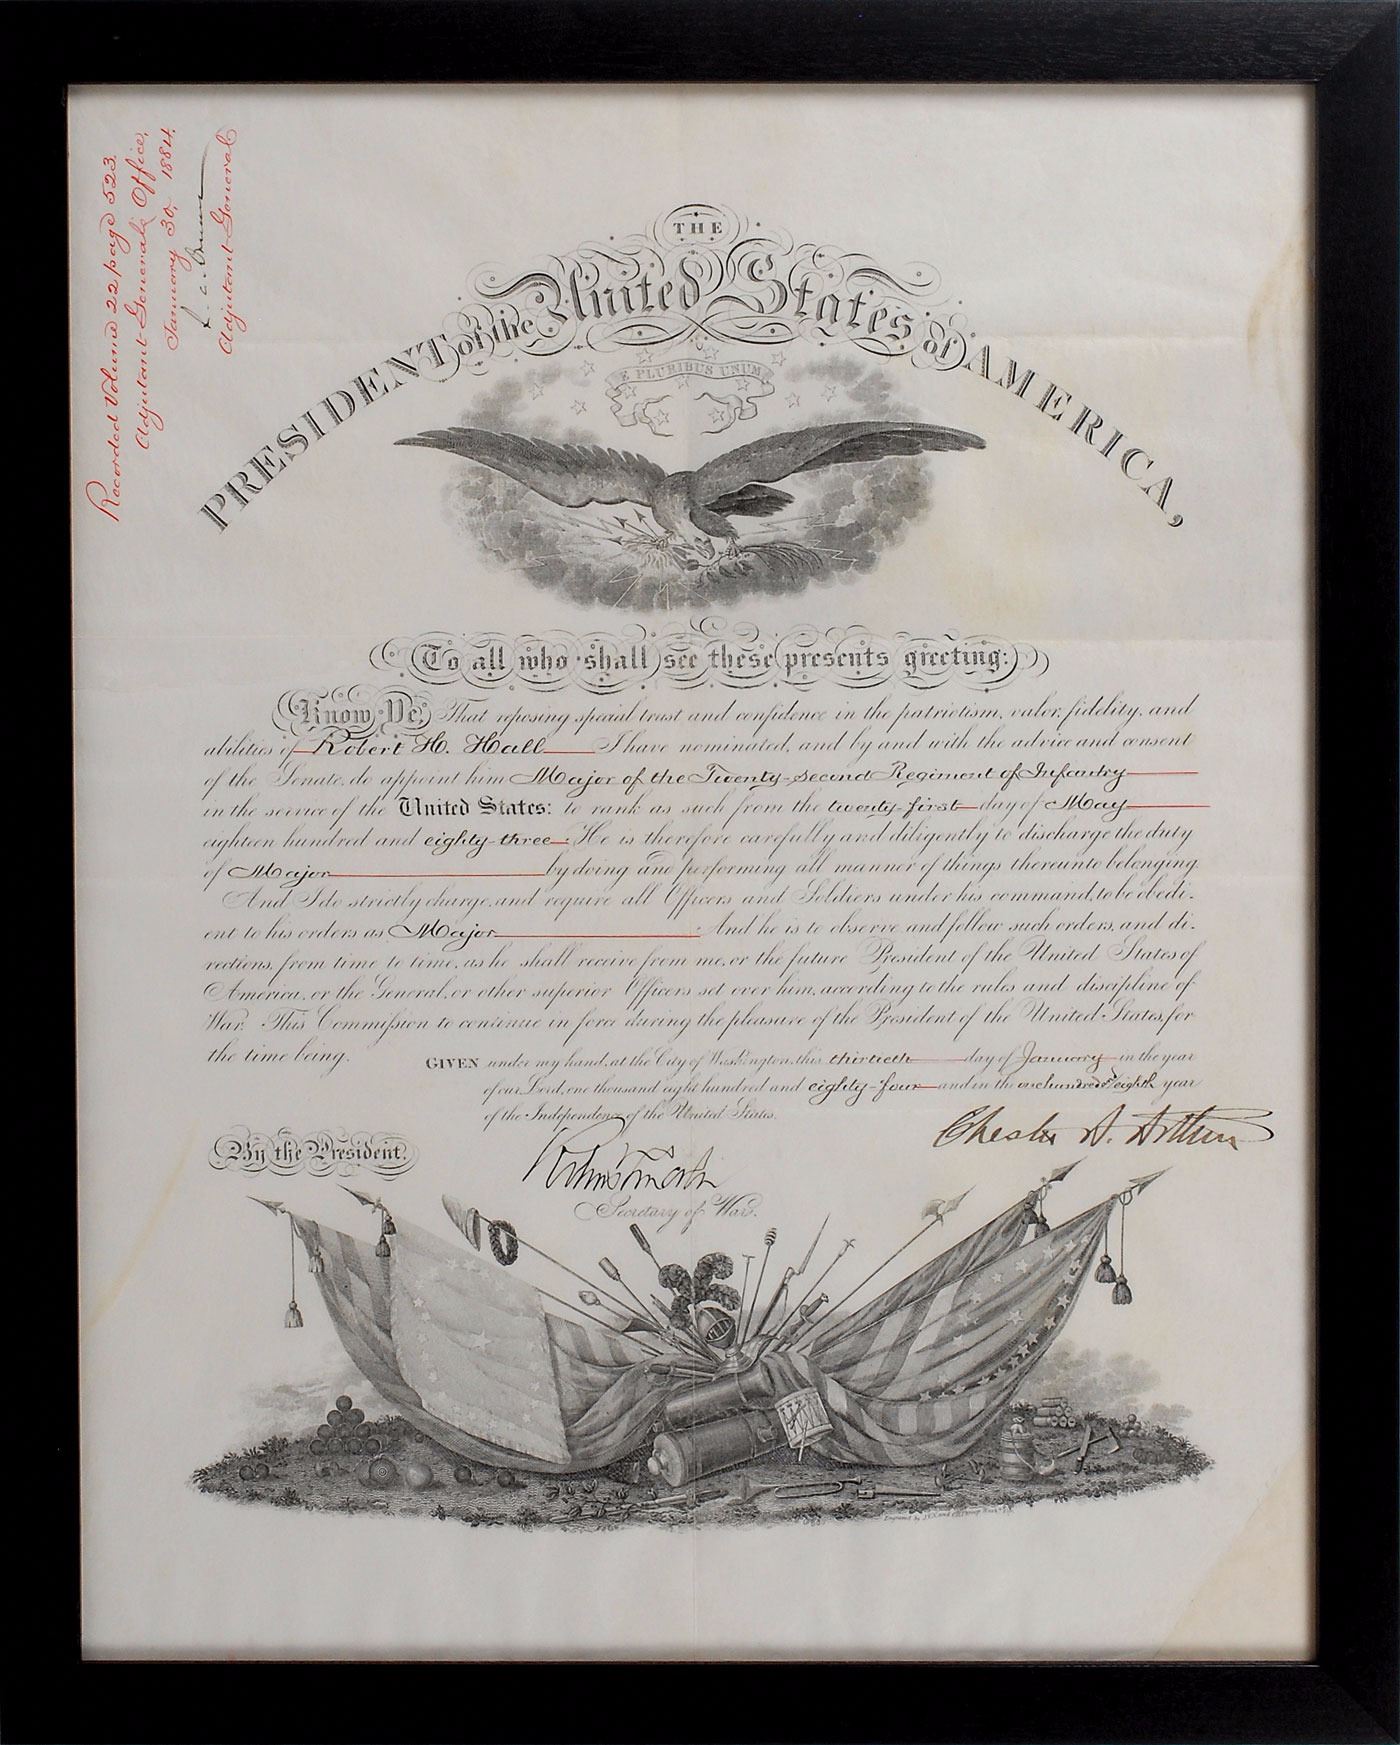 Recorded Volume 22 page 523.
Adjutant General's Office,
January 30, 1884.
Adjutant General
THE
PRESIDENT of the United States of AMERICA,
E PLURIBUS UNUM
To all who shall see these presents greeting:
Know Ye, That reposing special trust and confidence in the patriotism, valor, fidelity, and
abilities of Robert H. Hall I have nominated, and by and with the advice and consent
of the Senate, do appoint him Major of the Twenty-second Regiment of Infantry
in the service of the United States: to rank as such from the twenty-first day of May
eighteen hundred and eighty-three. He is therefore carefully and diligently to discharge the duty
of Major by doing and performing all manner of things thereunto belonging.
And I do strictly charge, and require all Officers and Soldiers under his command, to be obedi-
ent to his orders as Major And he is to observe and follow such orders, and di-
rections, from time to time, as he shall receive from me, or the future President of the United States of
America, or the General, or other superior Officers set over him, according to the rules and discipline of
War. This Commission to continue in force during the pleasure of the President of the United States, for
the time being.
GIVEN under my hand, at the City of Washington, this thirtieth day of January in the year
of our Lord, one thousand eight hundred and eighty-four and in the one hundred & eighth year
of the Independence of the United States.
Chester A. Arthur
By the President.
Secretary of War.